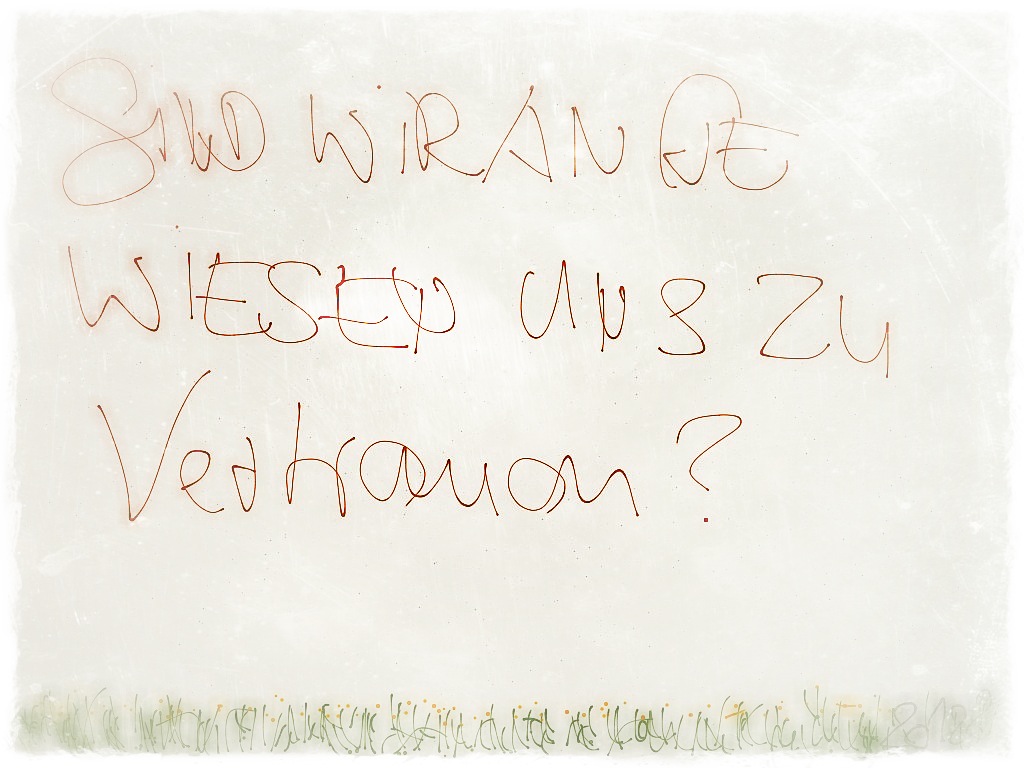 SIND WIR ANGE
WIESEN UNS ZU
Vertrauen?